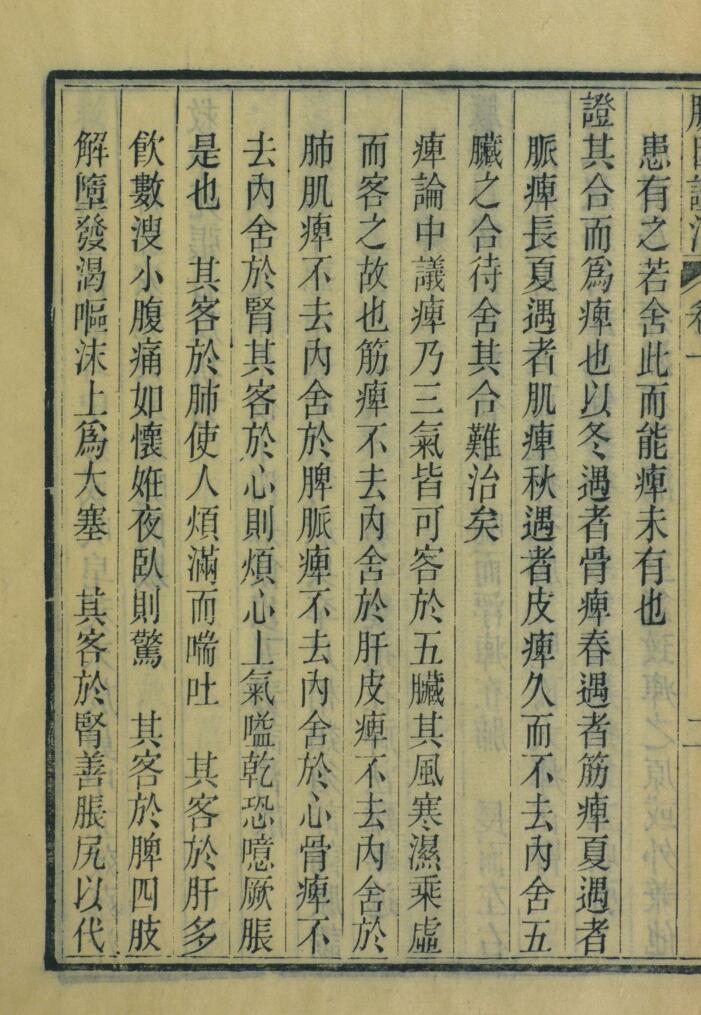 脈因證治 卷一 二
患有之若舍此而能痺未有也
證其合而爲痺也以冬遇者骨痺春遇者筋痺夏遇者
脈痺長夏遇者肌痺秋遇者皮痺久而不去內舍五
臟之合待舍其合難治矣
痺論中議痺乃三氣皆可客於五臟其風寒濕乘虛
而客之故也筋痺不去內舍於肝皮痺不去內舍於
肺肌痺不去內舍於脾脈痺不去內舍於心骨痺不
去內舍於腎其客於心則煩心上氣嗌乾恐噫厥脹
是也 其客於肺使人煩滿而喘吐 其客於肝多
飲數溲小腹痛如懷姙夜臥則驚 其客於脾四肢
解墮發渴嘔沫上爲大塞 其客於腎善脹尻以代